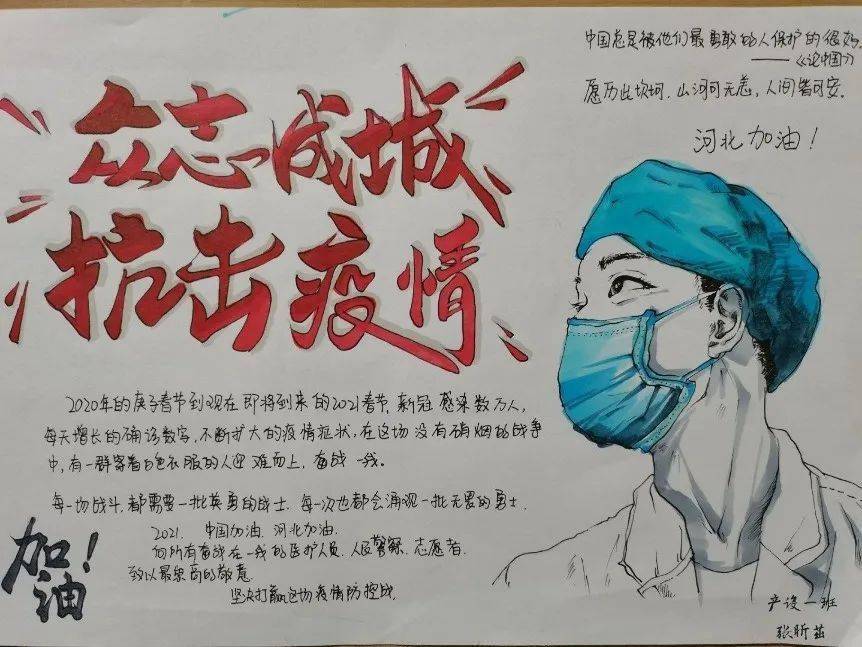 众志成城
抗击疫情
中国总是被他们最勇敢的人保护的很好。
——《论中国》
愿历此坎坷,山河可无恙,人间皆可安。
河北加油!
2020年的庚子春节到现在即将到来的2021春节,新冠感染数万人,
每天增长的确诊数字,不断扩大的疫情症状,在这场没有硝烟的战争
中,有一群穿着白色衣服的人迎难而上,奋战一线。
每一场战斗,都需要一批英勇的战士,每一次也都会涌现一批无畏的勇士.
2021. 中国加油.河北加油.
向所有奋战在一线的医护人员.人民警察.志愿者.
致以最崇高的敬意
坚决打赢这场疫情防控战.
加油!
产设一班
张昕茁